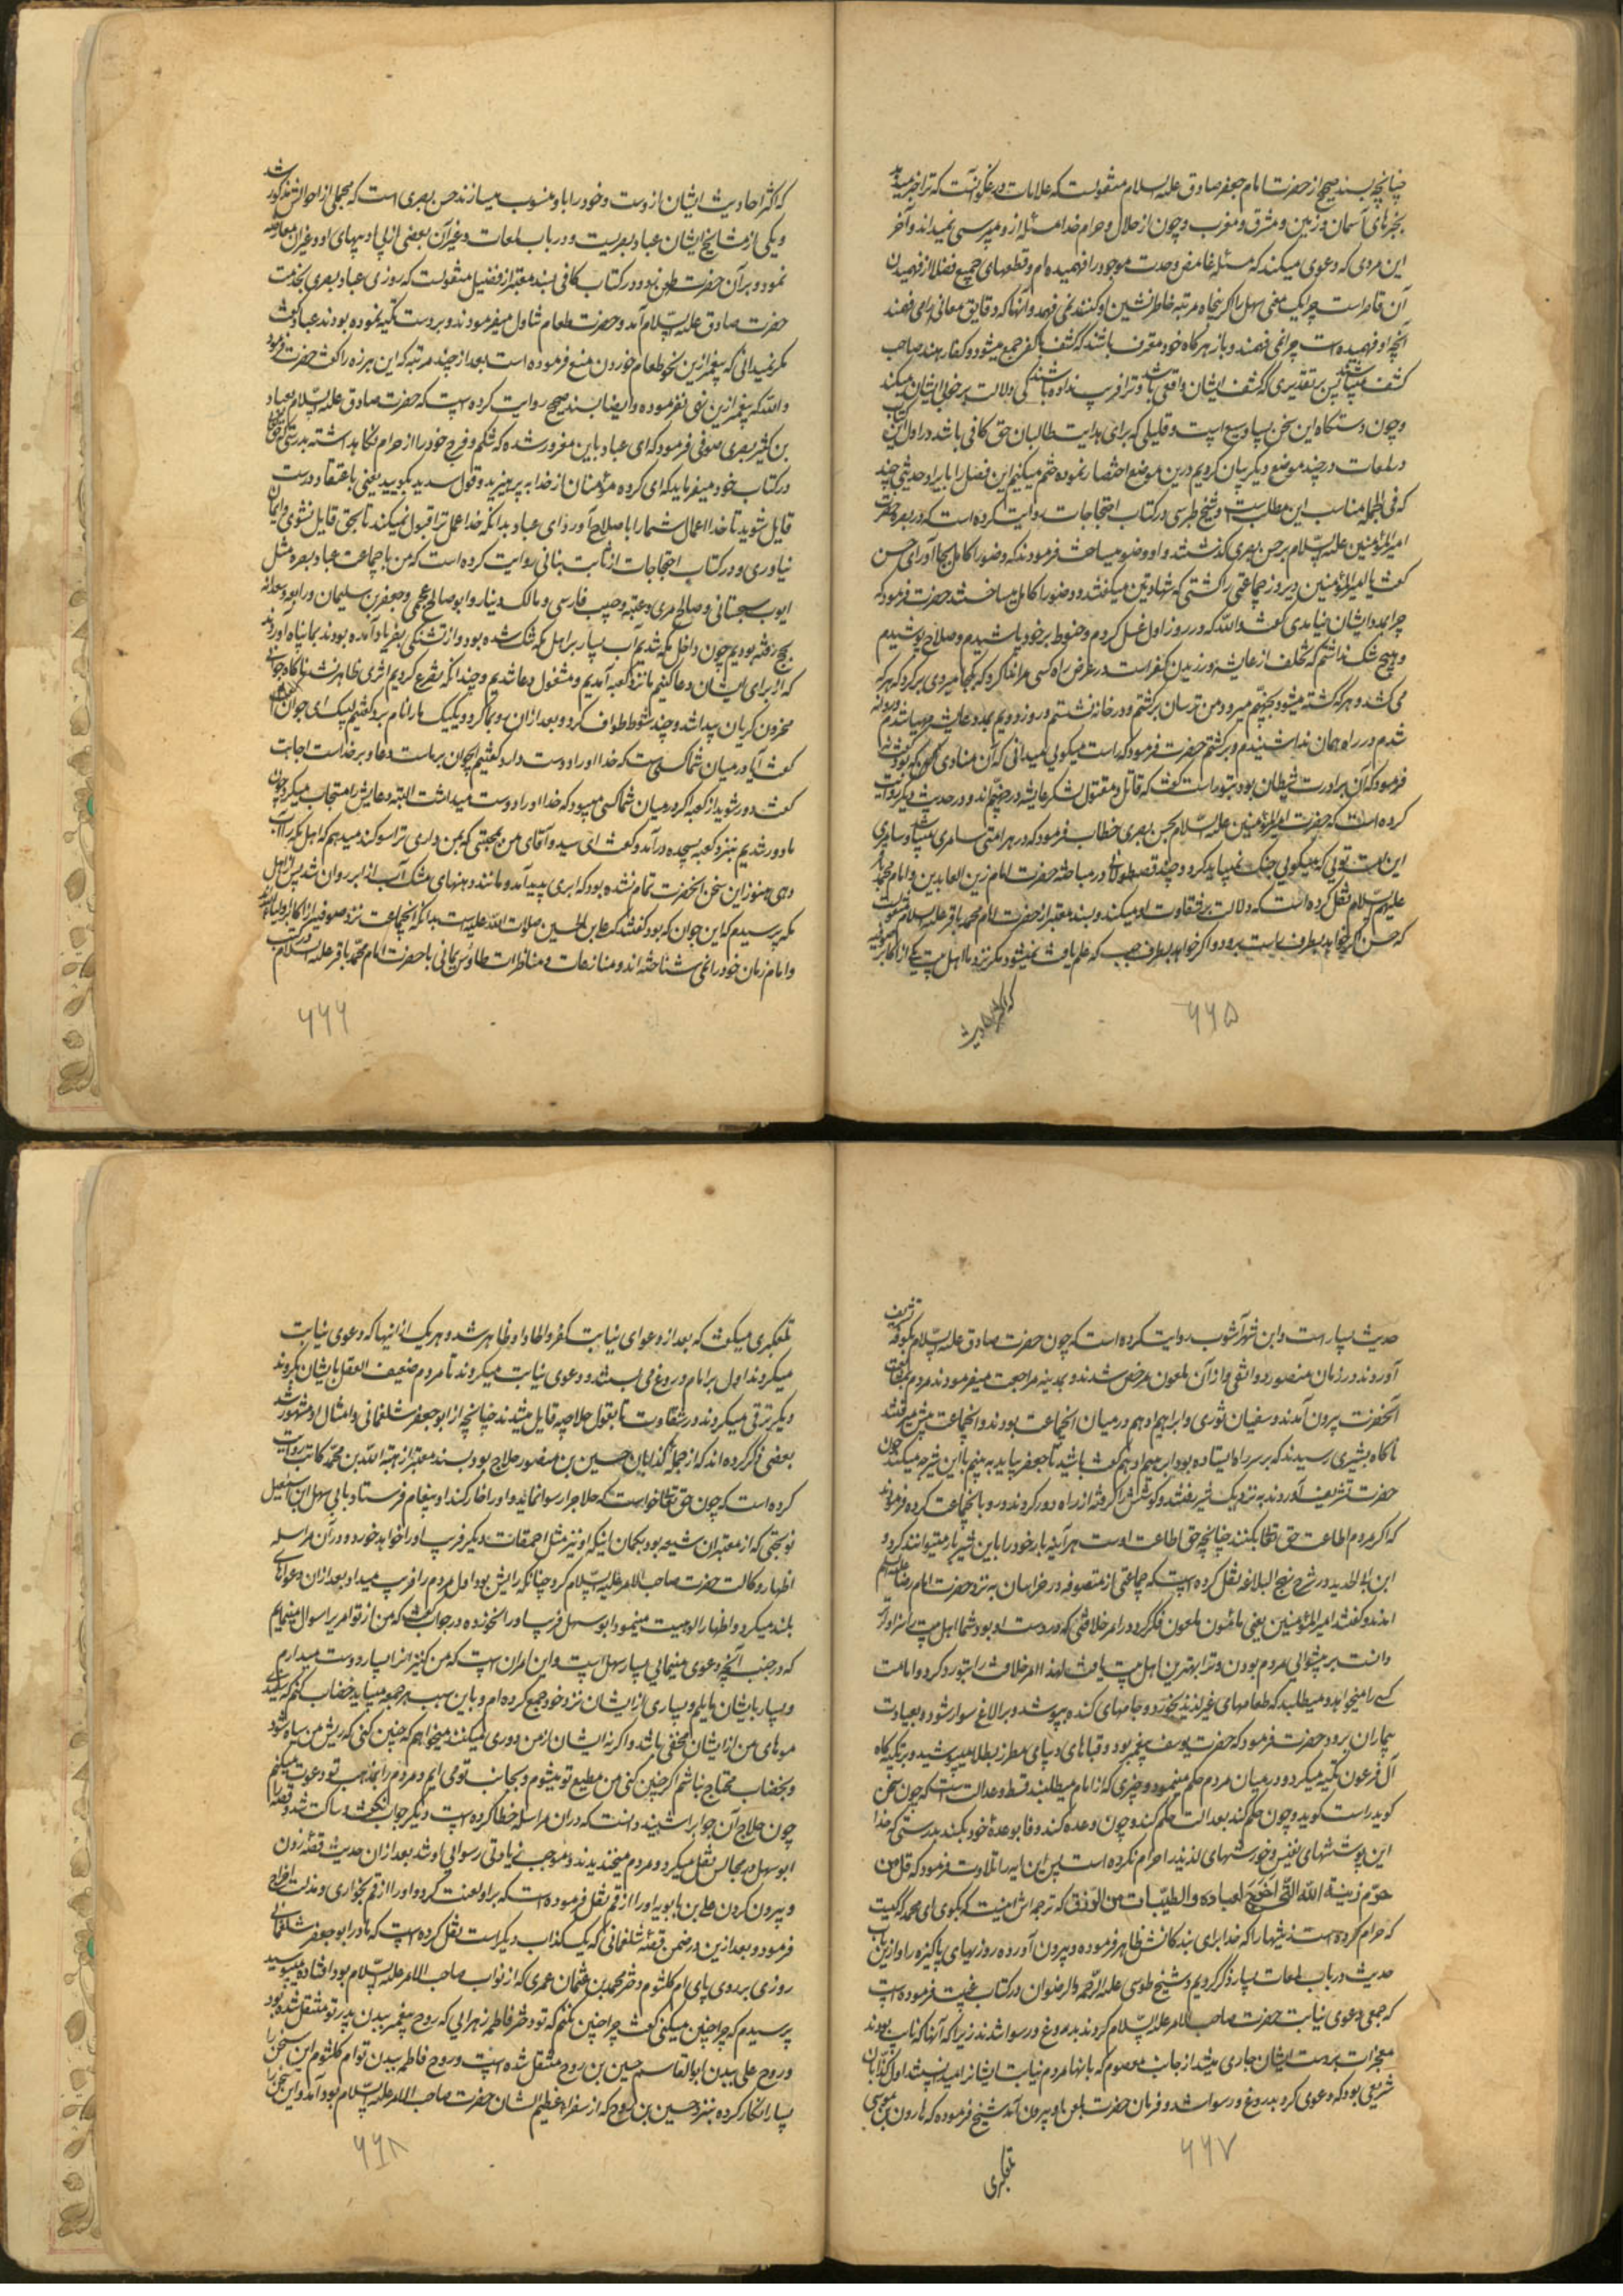 چنانچه بسند صحیح از حضرت امام جعفر صادق علیه السلام منقولست که علامات دروغگو آنست که ترا خبر میدهد
بخبرهای آسمان و زمین و مشرق و مغرب و چون از حلال و حرام خدا مسئله ازو میپرسی نمیداند و آخر
این مردی که دعوی میکند که مسئله غامض وحدت موجود را فهمیده ام و قطعهای جمیع فضلا از فهمیدن
آن قاصر است چرا یک معنی سهل را اگر پنجاه مرتبه خاطرنشین او کنند نمی فهمد و آنها که دقایق معانی را می فهمند
آنچه او فهمیده است چرا نمی فهمند و باز هرگاه خود معترف باشند که کشف با کفر جمع میشود و کفار هند صاحب
کشف میباشند پس بر تقدیری که کشف ایشان واقعی باشد و ترا فریب نداده باشند کی دلالت بر خوبی ایشان میکند
و چون دستگاه این سخن بسیار وسیع است و قلیلی که برای هدایت طالبان حق کافی باشد در اول این کتاب
در لمعات و در چند موضع دیگر بیان کردیم درین موضع اختصار نموده ختم میکنیم این فصل را بایراد حدیثی چند
که فی الجمله مناسب این مطلب است و شیخ طبرسی در کتاب احتجاجات روایت کرده است که در بصره حضرت
امیرالمؤمنین علیه السلام بر حسن بصری گذشتند و او وضو میساخت فرمودند که وضو را کامل بجا آور ای حسن
گفت یا امیرالمؤمنین دیروز جماعتی را کشتی که شهادتین میگفتند و وضو را کامل میساختند حضرت فرمود که
چرا بمدد ایشان نیامدی گفت والله که در روز اول غسل کردم و حنوط بر خود پاشیدم و سلاح پوشیدم
و هیچ شک نداشتم که تخلف از عایشه ورزیدن کفر است در عرض راه کسی مرا ندا کرد که بکجا میروی برگرد که هر که
می کشد و هر که کشته میشود بجهنم میرود من ترسان برگشتم و در خانه نشستم و روز دویم بمدد عایشه مهیا شدم و روانه
شدم و در راه همان ندا شنیدم و برگشتم حضرت فرمود که راست میگویی میدانی که آن منادی که بود گفت نه
فرمود که آن برادرت شیطان بود و بتو راست گفت که قاتل و مقتول لشکر عایشه در جهنم اند و در حدیث دیگر روایت
کرده است که حضرت امیرالمؤمنین علیه السلام بحسن بصری خطاب فرمود که در هر امتی سامری میباشد و سامری
این امت تویی که میگویی جنگ نمیباید کرد و چند قصه طولانی در مباحثه حضرت امام زین العابدین و امام محمد باقر
علیهم السلام نقل کرده است که دلالت بر شقاوت او میکند و بسند معتبر از حضرت امام محمد باقر علیه السلام منقولست
که حسن اگر خواهد بطرف راست برود و اگر خواهد بطرف چپ که علم یافت نمیشود مگر نزد ما اهل بیت یکی از اکابر صوفیه
که اکثر احادیث
۶۶۵
که اکثر احادیث ایشان ازوست و خود را باو منسوب میسازند حسن بصری است که مجملی از احوالش مذکور شد
و یکی از مشایخ ایشان عباد بصریست و در باب لمعات و غیر آن بعضی از بی ادبیهای او و غیر آن معارضه
نمود و بر آن حضرت طعن نمود و در کتاب کافی بسند معتبر از فضیل منقولست که روزی عباد بصری بخدمت
حضرت صادق علیه السلام آمد و حضرت طعام تناول میفرمودند و بر دست تکیه نموده بودند عباد گفت
مگر نمیدانی که پیغمبر ازین نحو طعام خوردن منع فرموده است بعد از چند مرتبه که این هرزه را گفت حضرت فرمود
والله که پیغمبر ازین نهی نفرموده و ایضا بسند صحیح روایت کرده است که حضرت صادق علیه السلام بعباد
بن کثیر بصری صوفی فرمود که ای عباد باین مغرور شده که شکم و فرج خود را از حرام نگاه داشته بدرستی که حق تعالی
در کتاب خود میفرماید که ای گروه مؤمنان از خدا به پرهیزید و قول سدید بگویید یعنی باعتقاد درست
قایل شوید تا خدا اعمال شما را باصلاح آورد ای عباد بدانکه خدا عمل ترا قبول نمیکند تا بحق قایل نشوی و ایمان
نیاوری و در کتاب احتجاجات از ثابت بنانی روایت کرده است که من با جماعت عباد بصره مثل
ایوب سجستانی و صالح مری و عتبه و حبیب فارسی و مالک دینار و ابو صالح اعجمی و جعفر بن سلیمان و رابعه و سعدانه
بحج رفته بودیم چون داخل مکه شدیم آب بسیار بر اهل مکه تنگ شده بود و از تشنگی بفریاد آمده بودند بما پناه آوردند
که از برای ایشان دعا کنیم ما نزد کعبه آمدیم و مشغول دعا شدیم و چندانکه تضرع کردیم اثری ظاهر نشد ناگاه جوانی
محزون گریان پیدا شد و چند شوط طواف کرد و بعد از آن رو بما کرد و یک یک ما را نام برد گفتیم لبیک ای جوان
گفت آیا در میان شما کسی هست که خدا او را دوست دارد گفتیم ای جوان بر ماست دعا و بر خداست اجابت
گفت دور شوید از کعبه اگر در میان شما کسی میبود که خدا او را دوست میداشت البته دعایش را مستجاب میکرد چون
ما دور شدیم بنزد کعبه بسجده درآمد و گفت ای سید و آقای من بمحبتی که بمن داری ترا سوگند میدهم که اهل مکه را آب
دهی هنوز این سخن آنحضرت تمام نشده بود که ابری پدید آمد و مانند دهنهای مشک آب از ابر روان شد پس از اهل
مکه پرسیدم که این جوان که بود گفتند که علی بن الحسین صلوات الله علیه است بدانکه اینجماعت نزد صوفیه از اکابر اولیااند
و امام زمان خود را نمی شناخته اند و منازعات و مناظرات طاوس یمانی با حضرت امام محمد باقر علیه السلام در کتب
۶۶۶
حدیث بسیار است و ابن شهرآشوب روایت کرده است که چون حضرت صادق علیه السلام بکوفه تشریف
آوردند در زمان منصور دوانقی و از آن ملعون مرخص شدند و بمدینه مراجعت میفرمودند مردم بمشایعت
آنحضرت بیرون آمدند و سفیان ثوری و ابراهیم ادهم در میان آنجماعت بودند و آنجماعت پیش میرفتند
ناگاه بشیری رسیدند که بر سر راه ایستاده بود ابراهیم ادهم گفت باشید تا جعفر بیاید به بینیم با این شیر چه میکند چون
حضرت تشریف آوردند به نزدیک شیر رفتند و گوشش را گرفته از راه دور کردند و رو بآنجماعت کرده فرمودند
که اگر مردم اطاعت حق تعالی بکنند چنانچه حق اطاعت اوست هر آینه بار خود را باین شیر بار میتوانند کرد و
ابن ابی الحدید در شرح نهج البلاغه نقل کرده است که جماعتی از متصوفه در خراسان به نزد حضرت امام رضا علیه السلام
آمدند و گفتند امیرالمؤمنین یعنی مأمون ملعون فکر کرد در امر خلافتی که در دست او بود شما اهل بیت را سزاوارتر
دانست بر پیشوایی مردم بودن و ترا بهترین اهل بیت یافت لهذا امر خلافت را بتو رد کرد و امامت
کسی را میخواهد و میطلبد که طعامهای غیر لذیذ بخورد و جامهای کنده بپوشد و بر الاغ سوار شود و بعیادت
بیماران برود حضرت فرمود که حضرت یوسف پیغمبر بود و قباهای دیبای مطرز بطلا میپوشید و بر تکیه گاه
آل فرعون تکیه میکرد و در میان مردم حکم مینمود و چیزی که از امام میطلبند قسط و عدالت است که چون سخن
گوید راست گوید و چون حکم کند بعدالت حکم کند و چون وعده کند وفا بوعدهٔ خود بکند بدرستی که خدا
این پوششهای نفیس و خورشهای لذیذ را حرام نکرده است پس این آیه را تلاوت فرمود که قل من
حرّم زینة الله الّتی اخرج لعباده والطیّبات من الرّزق که ترجمه اش اینست که بگوی ای محمد که کیست
که حرام کرده است زینتهارا که خدا برای بندگانش ظاهر فرموده و بیرون آورده روزیهای پاکیزه را و ازین باب
حدیث در باب لمعات بسیار ذکر کردیم و شیخ طوسی علیه الرّحمه والرضوان در کتاب غیبت فرموده است
که جمعی دعوی نیابت حضرت صاحب الامر علیه السّلام کردند بدروغ و رسوا شدند زیرا که آنها که نایب بودند
معجزات بر دست ایشان جاری میشد از جانب معصوم که بآنها مردم نیابت ایشانرا میدانستند اول کذابان
شریعی بود که دعوی کرد بدروغ و رسوا شد و فرمان حضرت بلعن او بیرون آمد شیخ فرموده که هارون بن موسی
تلعکبری
۶۶۷
تلعکبری میگفت که بعد از دعوای نیابت کفر و الحاد او ظاهر شد و هر یک از اینها که دعوی نیابت
میکردند اول بر امام دروغ می بستند و دعوی نیابت میکردند تا مردم ضعیف العقل بایشان بگروند
دیگر ترقی میکردند در شقاوت تا بقول حلاجیه قایل میشدند چنانچه از ابو جعفر شلمغانی و امثال او مشهور شد
بعضی ذکر کرده اند که از جمله کذابان حسین بن منصور حلاج بود و بسند معتبر از هبة الله بن محمد کاتب روایت
کرده است که چون حق تعالی خواست که حلاج را رسوا نماید و او را خوار کند او پیغام فرستاد بابی سهل ابن اسمعیل
نوبختی که از معتبران شیعه بود بگمان اینکه او نیز مثل احمقان دیگر فریب او را خواهد خورد و در آن مراسله
اظهار وکالت حضرت صاحب الامر علیه السّلام کرد چنانکه رایش بود اول مردم را فریب میداد بعد از آن دعوای
بلند میکرد و اظهار الوهیت مینمود ابو سهل فریب او را نخورده در جواب گفت که من از تو امری را سوال مینمایم
که در جنب آنچه دعوی مینمایی بسیار سهل است و این امر آن است که من کنیزانرا بسیار دوست میدارم
و بسیار بایشان مایلم و بسیاری از ایشان نزد خود جمع کرده ام و باین سبب هر جمعه میباید خضاب کنم که سفیدی
موهای من از ایشان مخفی باشد و اگر نه ایشان از من دوری میکنند میخواهم که چنین کنی که ریش من سیاه شود
و بخضاب محتاج نباشم اگر چنین کنی من مطیع تو میشوم و بجانب تو می آیم و مردم را بمذهب تو دعوت میکنم
چون حلاج آن جواب را شنید دانست که در آن مراسله خطا کرده است دیگر جواب نگفت و ساکت شد و قصه را
ابو سهل در مجالس نقل میکرد و مردم میخندیدند و موجب زیادتی رسوائی او شد بعد از آن حدیث قصه زدن
و بیرون کردن علی بن بابویه او را از قم نقل فرموده است که بر او لعنت کرد و او را از قم بخواری و مذلت اخراج
فرمود و بعد ازین در ضمن قصهٔ شلمغانی که یک کذاب دیگر است نقل کرده است که مادر ابو جعفر شلمغانی
روزی بر روی پای ام کلثوم دختر محمد بن عثمان عمری که از نواب صاحب الامر علیه السّلام بود افتاده میبوسید
پرسیدم که چرا چنین میکنی گفت چرا چنین نکنم که تو دختر فاطمه زهرایی که روح پیغمبر ببدن پدر تو منتقل شده بود
و روح علی ببدن ابو القاسم حسین بن روح منتقل شده است و روح فاطمه ببدن تو ام کلثوم این سخن را
بسیار انکار کرده بنزد حسین بن روح که از سفراء عظیم الشان حضرت صاحب الامر علیه السّلام بود آمد و این سخن را
۶۶۸